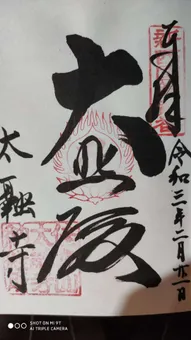 奉拝
令和三年二月廿一日
大悲殿
太融寺
SHOT ON MI 9T
AI TRIPLE CAMERA